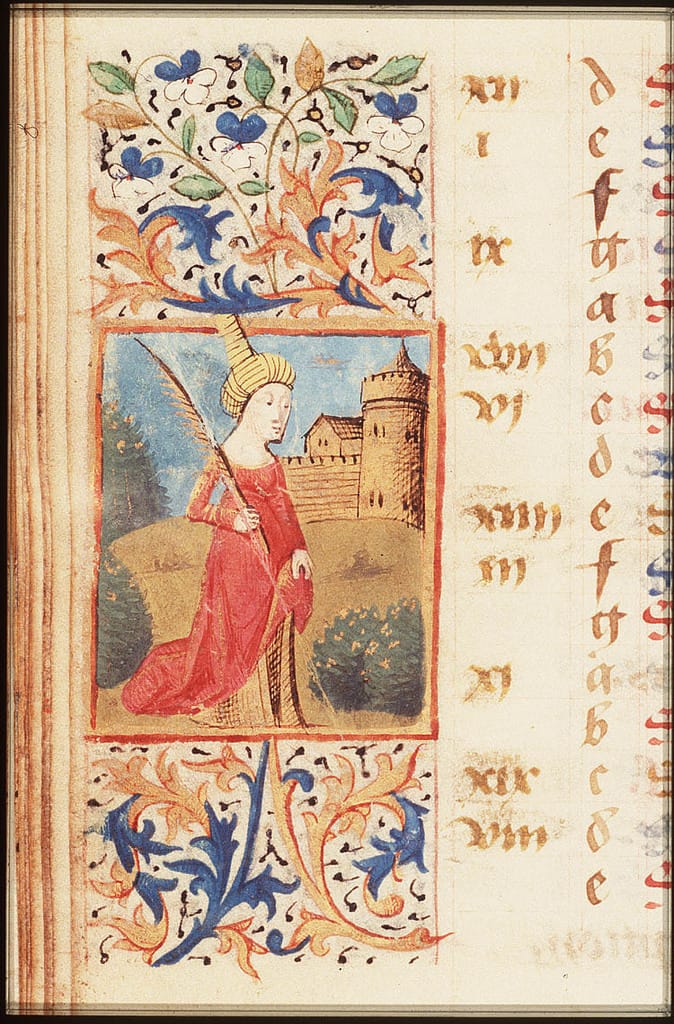 xii d
i e
f
ix g
a
xvii b
vi c
d
xiiii e
iii f
g
xi a
b
xix c
viii d
e